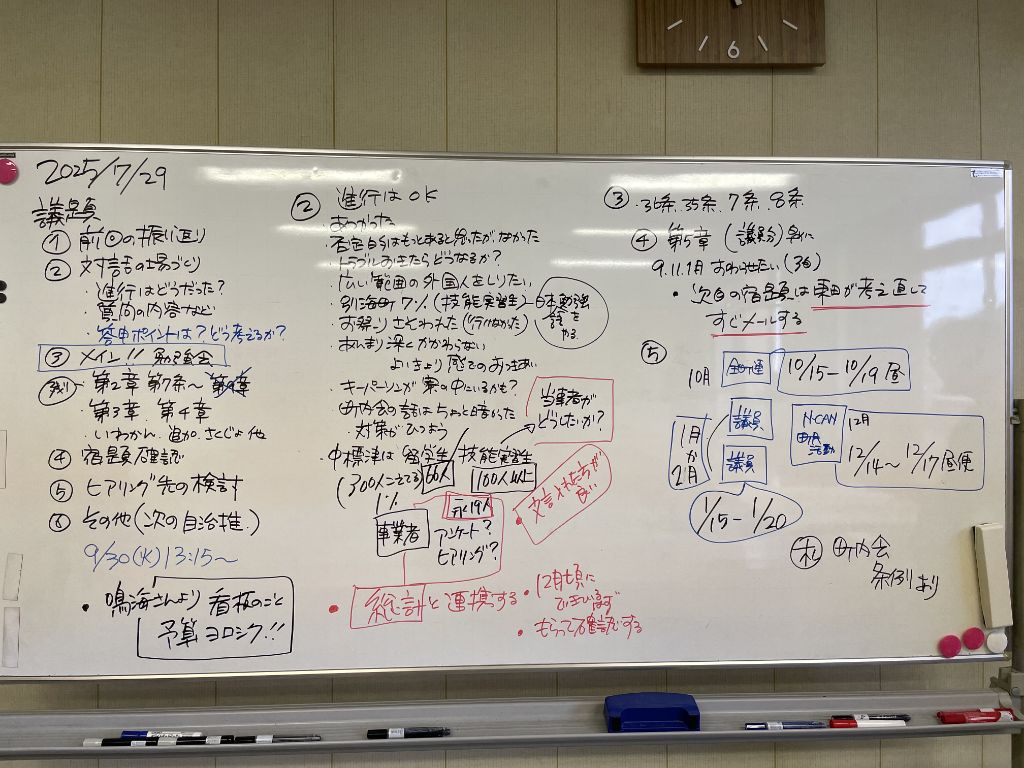 2025/7/29
議題
① 前回の振り返り
② 対話の場づくり
・進行はどうだった?
・質問の内容など
・答申ポイントは?どう考えるか?
③ メイン!!
第2章 第7条~
・第3章 第4章
・いわかん、追加、さくじょ 他
④ 宿題確認
⑤ ヒアリング先の検討
⑥ その他(次の自治推.)
9/30(火)13:15~
・鳴海さんより 看板のこと
予算ヨロシク!!
② 進行はOK
・あつかった
・否定自分はもっとあると思ったが、なかった
・トラブルおきたらどうなるか?
・広い範囲の外国人をしりたい
・別海町7%(技能実習生)
日本
をやる
・お祭りさそわれた(行けなかった)
・あんまり深くかかわらない
よいきょり感でのおつきあい
・キーパーソンが案の中にいるかも?
・町内会の話はちょっと暗かった
対策がひつよう
当事者が
どうしたいか?
・中標津は 留学生/技能実習生
(300人こえてる)
66人
100人以上
1%
永19人
事業者
アンケート?
ヒアリング?
・文言入れた方が
良い
・総計と連携する
・12月頃に
できています
・もらって確認する
③ ・36条、35条、7条、8条
④ 第5章(議会)
9.11.1月 おわらせたい(3回)
・次回の宿題は東田が考え直して
すぐメールする
⑤
10月
10/15-10/19昼
1月
か
2月
議員
議員
1/15-1/20
N-CAN
町内
活動
12月
12/14~12/17昼便
札 町内会
条例あり
6